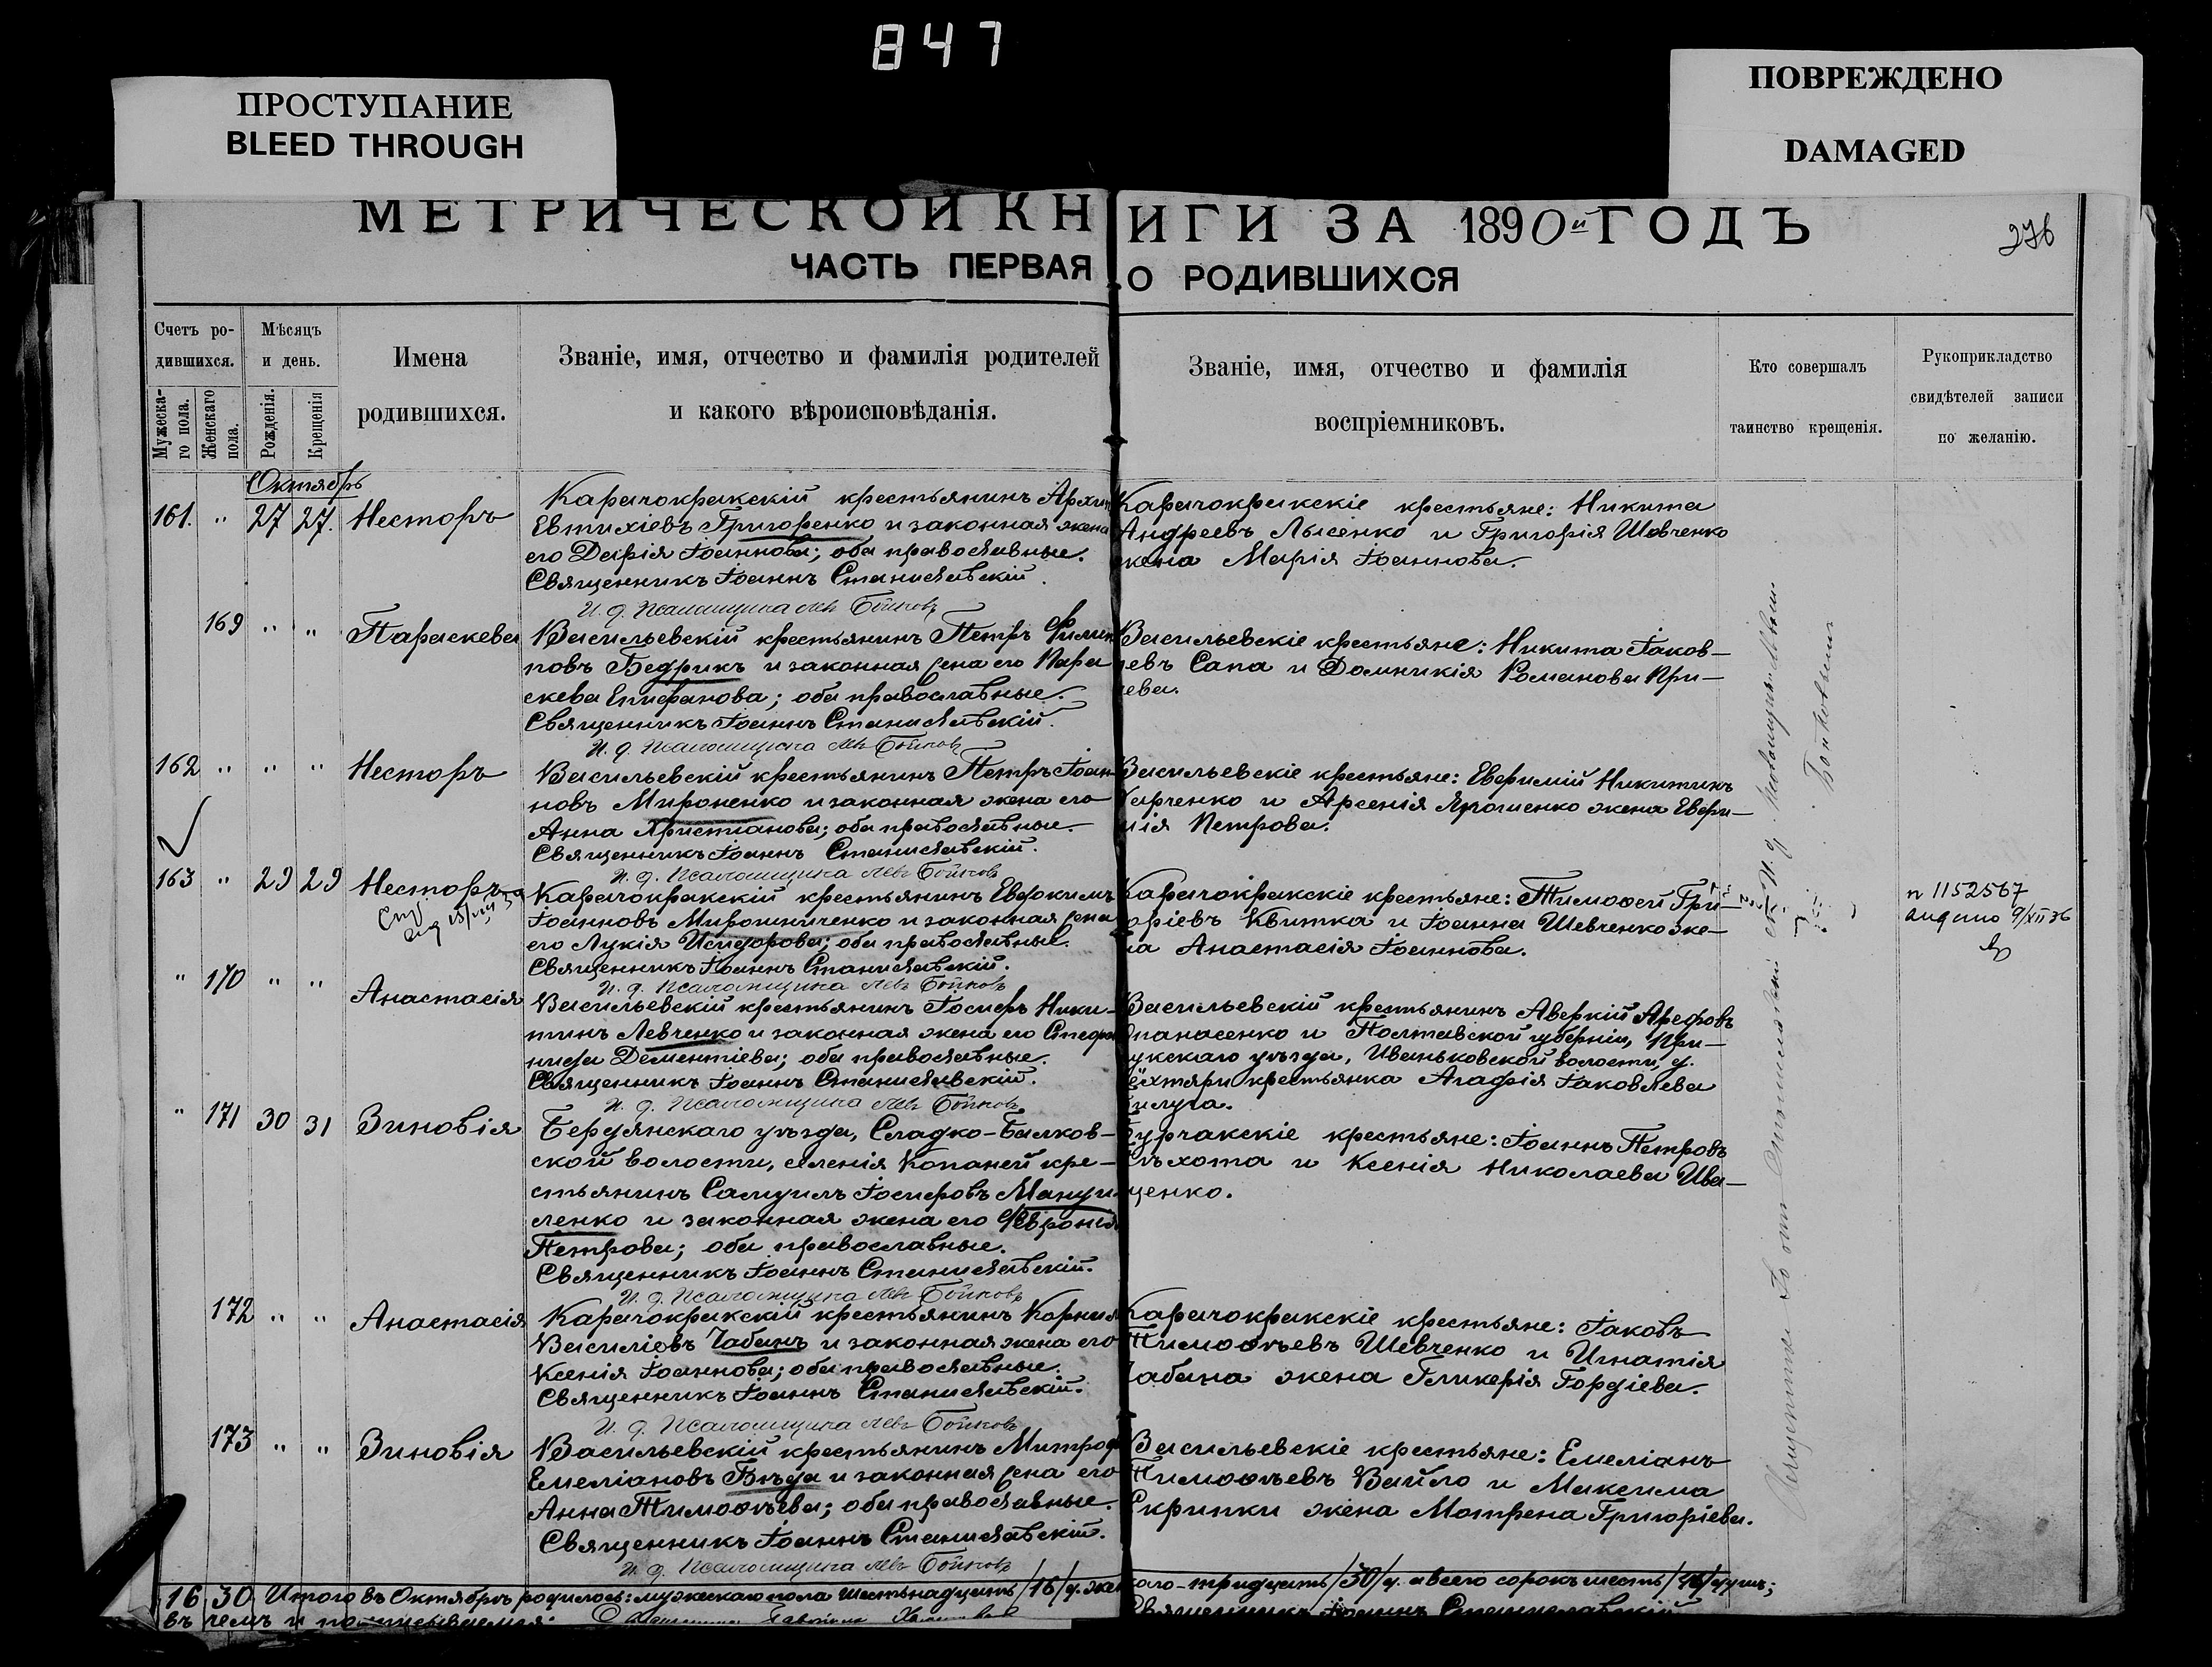 847
ПРОСТУПАНИЕ
BLEED THROUGH
ПОВРЕЖДЕНО
DAMAGED
МЕТРИЧЕСКОЙ КНИГИ ЗА 1890й ГОДЪ
276
ЧАСТЬ ПЕРВАЯ О РОДИВШИХСЯ
Счетъ ро-
дившихся.
Мужеска-
го пола.
Женскаго
пола.
Мѣсяцъ
и день.
Рожденія.
Крещенія
Имена
родившихся.
Званіе, имя, отчество и фамилія родителей
и какого вѣроисповѣданія.
Званіе, имя, отчество и фамилія
воспріемниковъ.
Кто совершалъ
таинство крещенія.
Рукоприкладство
свидѣтелей записи
по желанію.
Октябрь
161. " 27 27. Несторъ
Карачокракскій крестьянинъ Архип
Евтихіевъ Григоренко и законная жена
его Дарія Іоаннова; оба православные.
Священникъ Іоаннъ Станиславскій.
И. д. Псаломщика Левъ Бойковъ
Карачокракскіе крестьяне: Никита
Андреевъ Лысенко и Григорія Шовченко
жена Марія Іоаннова.
169 " " Параскева
Васильевскій крестьянинъ Петръ Филип
повъ Бедрикъ и законная жена его Пара
скева Епифанова; оба православные.
Священникъ Іоаннъ Станиславскій.
И. д. Псаломщика Левъ Бойковъ
Васильевскіе крестьяне: Никита Іаков-
левъ Сапа и Домникія Романова При-
ева.
162 " " " Несторъ
Васильевскій крестьянинъ Петръ Іоан-
новъ Мироненко и законная жена его
Анна Христианова; оба православные.
Священникъ Іоаннъ Станиславскій.
И. д. Псаломщика Левъ Бойковъ
Васильевскіе крестьяне: Евфимій Никитинъ
Харченко и Арсенія Ярошенко жена Евфи-
мія Петрова.
163 " 29 29 Несторъ
Карачокракскій крестьянинъ Евдокимъ
Іоанновъ Мирошниченко и законная жена
его Лукія Исидорова; оба православные.
Священникъ Іоаннъ Станиславскій.
И. д. Псаломщика Левъ Бойковъ
Карачокракскіе крестьяне: Тимоѳей Гри-
горіевъ Квитка и Іоанна Шевченко же-
на Анастасія Іоаннова.
п 1152567
9/XII 36
" 170 " " Анастасія
Васильевскій крестьянинъ Іосифъ Ники-
тинъ Левченко и законная жена его Стефа
нида Дементіева; оба православные.
Священникъ Іоаннъ Станиславскій.
И. д. Псаломщика Левъ Бойковъ
Васильевскій крестьянинъ Аверкій Арефовъ
Опанасенко и Полтавской губерніи, При-
лукскаго уѣзда, Иваньковской волости, д.
крестьянка Агафія Іаковлева
" 171 30 31 Зиновія
Бердянскаго уѣзда, Сладко-Балков-
ской волости, селенія Копаней кре-
стьянинъ Самуилъ Іосифовъ Мануи-
ленко и законная жена его Феврония
Петрова; оба православные.
Священникъ Іоаннъ Станиславскій.
И. д. Псаломщика Левъ Бойковъ
Бурчакскіе крестьяне: Іоаннъ Петровъ
и Ксенія Николаева Ива-
щенко.
172 " " Анастасія
Карачокракскій крестьянинъ Корнил
Василіевъ Чабанъ и законная жена его
Ксенія Іоаннова; оба православные.
Священникъ Іоаннъ Станиславскій.
И. д. Псаломщика Левъ Бойковъ
Карачокракскіе крестьяне: Іаковъ
Тимоѳѣевъ Шевченко и Игнатія
Чабана жена Гликерія Гордіева.
173 " " Зиновія
Васильевскій крестьянинъ Митроф
Емеліановъ Бѣда и законная жена его
Анна Тимоѳѣева; оба православные.
Священникъ Іоаннъ Станиславскій.
И. д. Псаломщика Левъ Бойковъ
Васильевскіе крестьяне: Емеліанъ
Тимоѳѣевъ Вайло и Максима
Скрипки жена Матрена Григоріева.
16 30 Итого въ Октябрѣ родилось: мужескаго пола шестьнадцать /16/ д. женскаго-тридцать /30/ д. а всего сорокъ шесть /46/ душъ;
въ чемъ и подписываемся:
Священникъ Іоаннъ Станиславскій